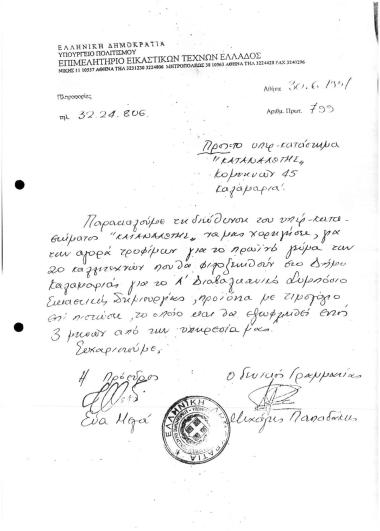 ΕΛΛΗΝΙΚΗ ΔΗΜΟΚΡΑΤΙΑ
ΥΠΟΥΡΓΕΙΟ ΠΟΛΙΤΙΣΜΟΥ
ΕΠΙΜΕΛΗΤΗΡΙΟ ΕΙΚΑΣΤΙΚΩΝ ΤΕΧΝΩΝ ΕΛΛΑΔΟΣ
ΝΙΚΗΣ 11 10557 ΑΘΗΝΑ ΤΗΛ 3231230 3224806 ΜΗΤΡΟΠΟΛΕΩΣ 38 10563 ΑΘΗΝΑ ΤΗΛ 3224420 FAX 3240296
Αθήνα 30.6.1991
Πληροφορίες
Αριθμ. Πρωτ. 799
τηλ. 32.24.806.
Προς το υπερ-κατάστημα
"ΚΑΤΑΝΑΛΩΤΗΣ"
Κομνηνών 45
Καλαμαριά.
Παρακαλούμε τη διεύθυνση του υπερ-κατα-
στήματος "ΚΑΤΑΝΑΛΩΤΗΣ" να μας χορηγήσει, για
την αγορά τροφίμων για το πρωϊνό γεύμα των
20 καλλιτεχνών που θα φιλοξενηθούν στο Δήμο
Καλαμαριάς για το Α' Διαβαλκανικό Συμπόσιο
Εικαστικής Δημιουργίας, προϊόντα με τιμολόγιο
επί πιστώσει, το οποίο και θα εξωφληθεί εντός
3 μηνών από την υπηρεσία μας.
Ευχαριστούμε,
Η Πρόεδρος
Ο Γενικός Γραμματέας
Εύα Μελά
Μιχάλης Παπαδάκης
ΕΛΛΗΝΙΚΗ ΔΗΜΟΚΡΑΤΙΑ